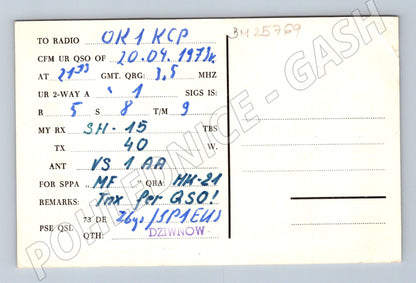 BM25769
TO RADIO OK1KCP
CFM UR QSO OF 20.04.1973r.
AT 21³³ GMT. QRG: 3,5 MHZ
UR 2-WAY A 1 SIGS IS:
R 5 S 8 T/M 9
MY RX SH-15 TBS
TX 40 W.
ANT VS 1 AA
FOR SPPA MF QRA: HM-21
REMARKS: Tnx for QSO!
PSE QSL 73 DE /SP1EUS
QTH: DZIWNOW
POHLEDNICE - GASH